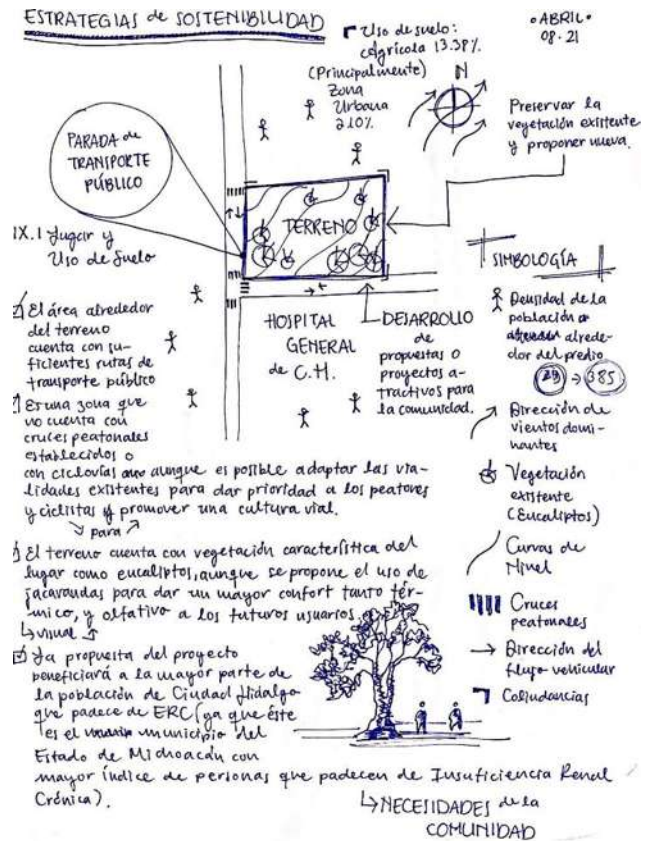 ESTRATEGIAS de SOSTENIBILIDAD
• ABRIL •
08 · 21
Uso de suelo:
Agrícola 13.38%.
(Principalmente)
Zona
Urbana
2.10%
N
Preservar la
vegetación existente
y proponer nueva.
PARADA de
TRANSPORTE
PÚBLICO
TERRENO
IX.1 Lugar y
Uso de Suelo
El área alrededor
del terreno
cuenta con su-
ficientes rutas de
transporte público
Es una zona que
no cuenta con
cruces peatonales
establecidos o
con ciclovías aunque es posible adaptar las via-
lidades existentes para dar prioridad a los peatones
y ciclistas y promover una cultura vial.
para
El terreno cuenta con vegetación característica del
lugar como eucalipto, aunque se propone el uso de
jacarandas para dar un mayor confort tanto tér-
mico, y olfativo a los futuros usuarios
visual
La propuesta del proyecto
beneficiará a la mayor parte de
la población de Ciudad Hidalgo
que padece de ERC (ya que éste
es el municipio del
Estado de Michoacán con
mayor índice de personas que padecen de Insuficiencia Renal
Crónica).
NECESIDADES de la
COMUNIDAD
HOSPITAL
GENERAL
de C.H.
DESARROLLO
de
propuestas o
proyectos a-
tractivos para
la comunidad.
SIMBOLOGÍA
Densidad de la
población
alrede-
dor del predio
29 → 385
Dirección de
vientos domi-
nantes
Vegetación
existente
(Eucaliptos)
Curvas de
Nivel
Cruces
peatonales
Dirección del
flujo vehicular
Colindancias